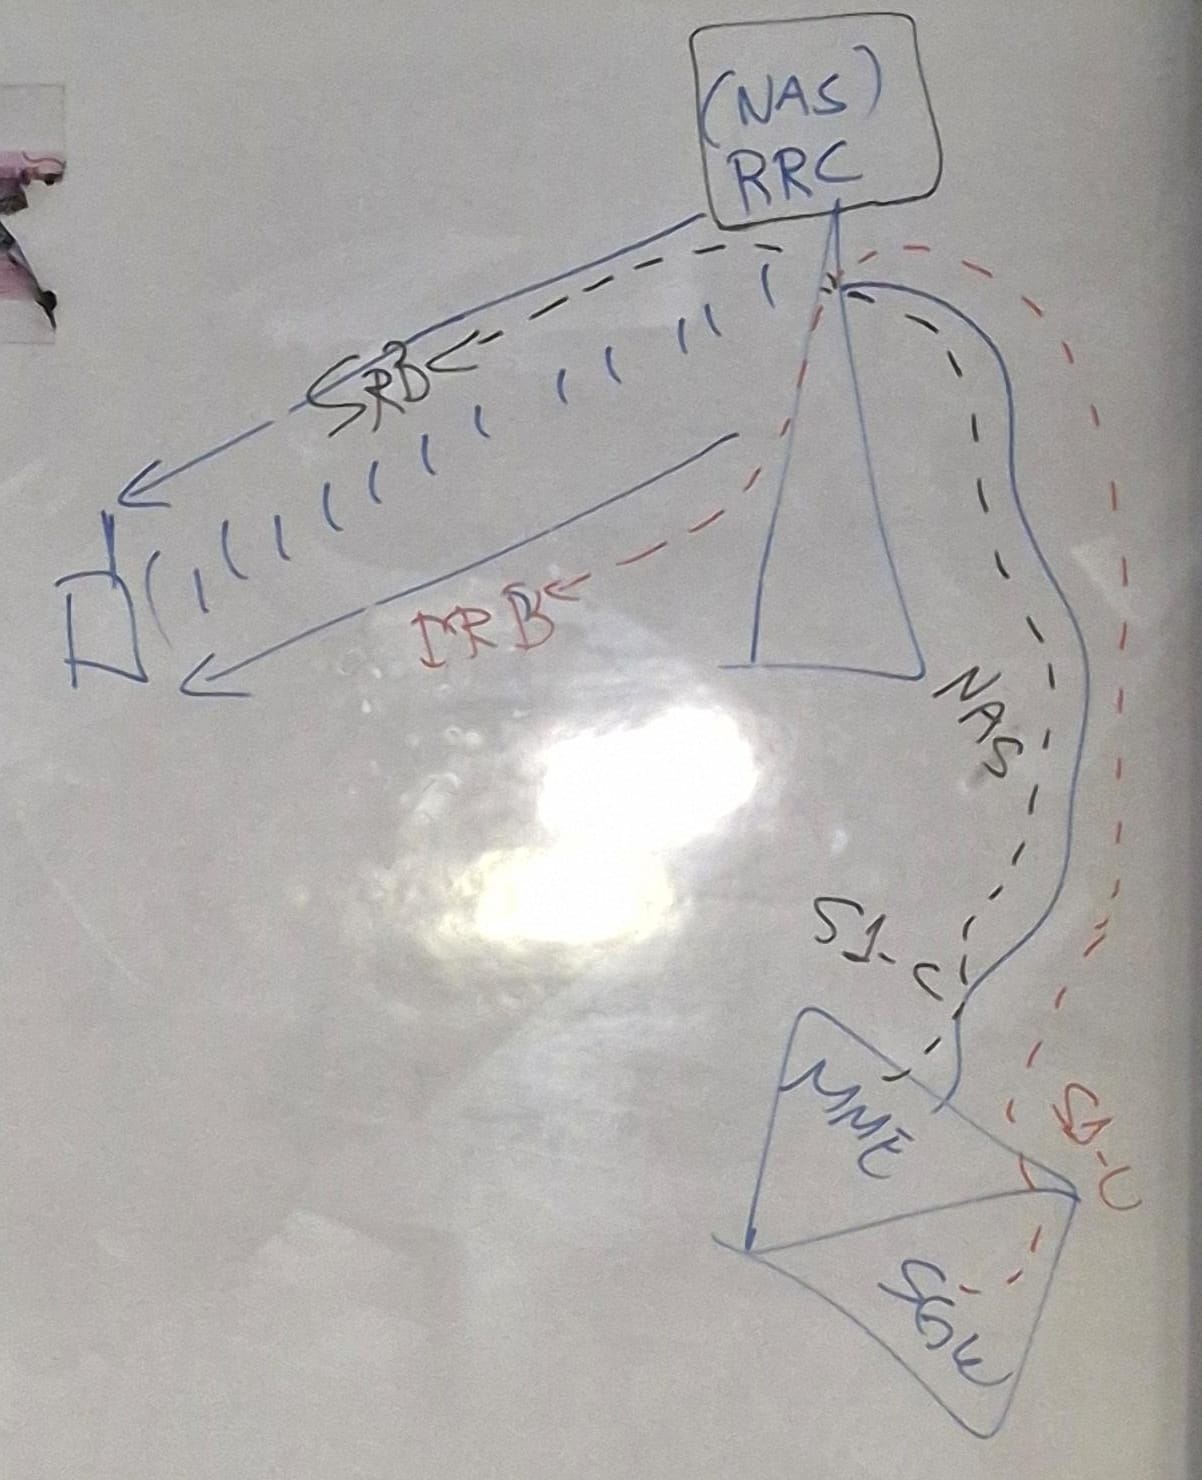 (NAS)
RRC
SRB
DRB
NAS
S1-C
MME
S1-U
SGW